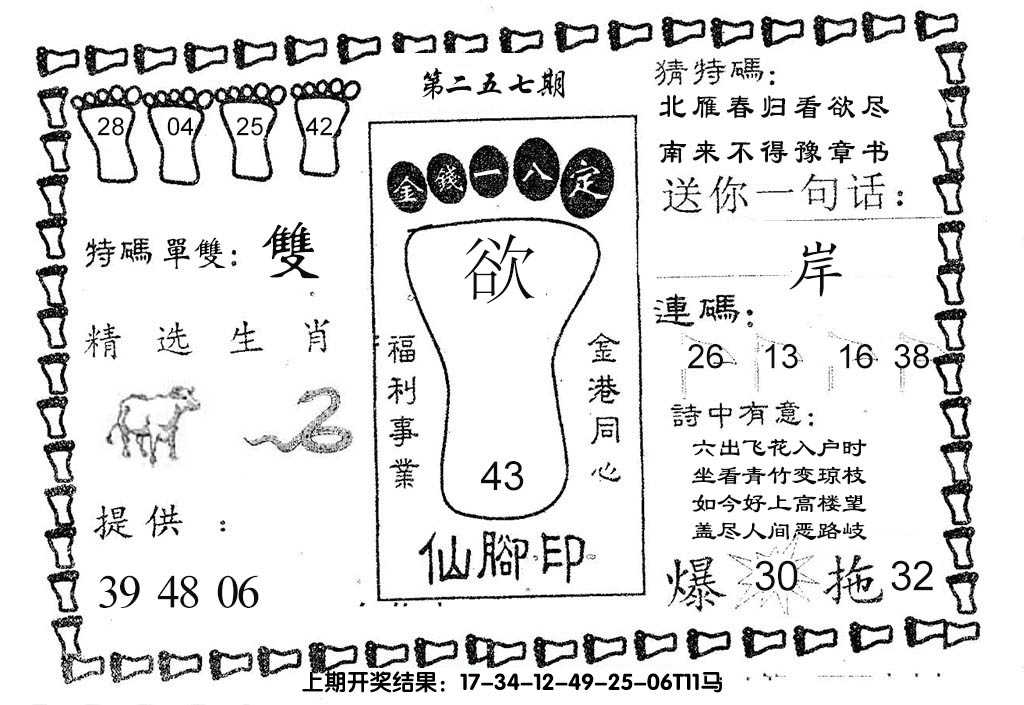 第二五七期
28 04 25 42
特碼單雙: 雙
精选生肖
提供:
39 48 06
金錢一八定
欲
福利事業
金港同心
43
仙腳印
猜特碼:
北雁春归看欲尽
南来不得豫章书
送你一句话:
岸
連碼:
26 13 16 38
詩中有意:
六出飞花入户时
坐看青竹变琼枝
如今好上高楼望
盖尽人间恶路岐
爆 30 拖 32
上期开奖结果: 17-34-12-49-25-06T11马